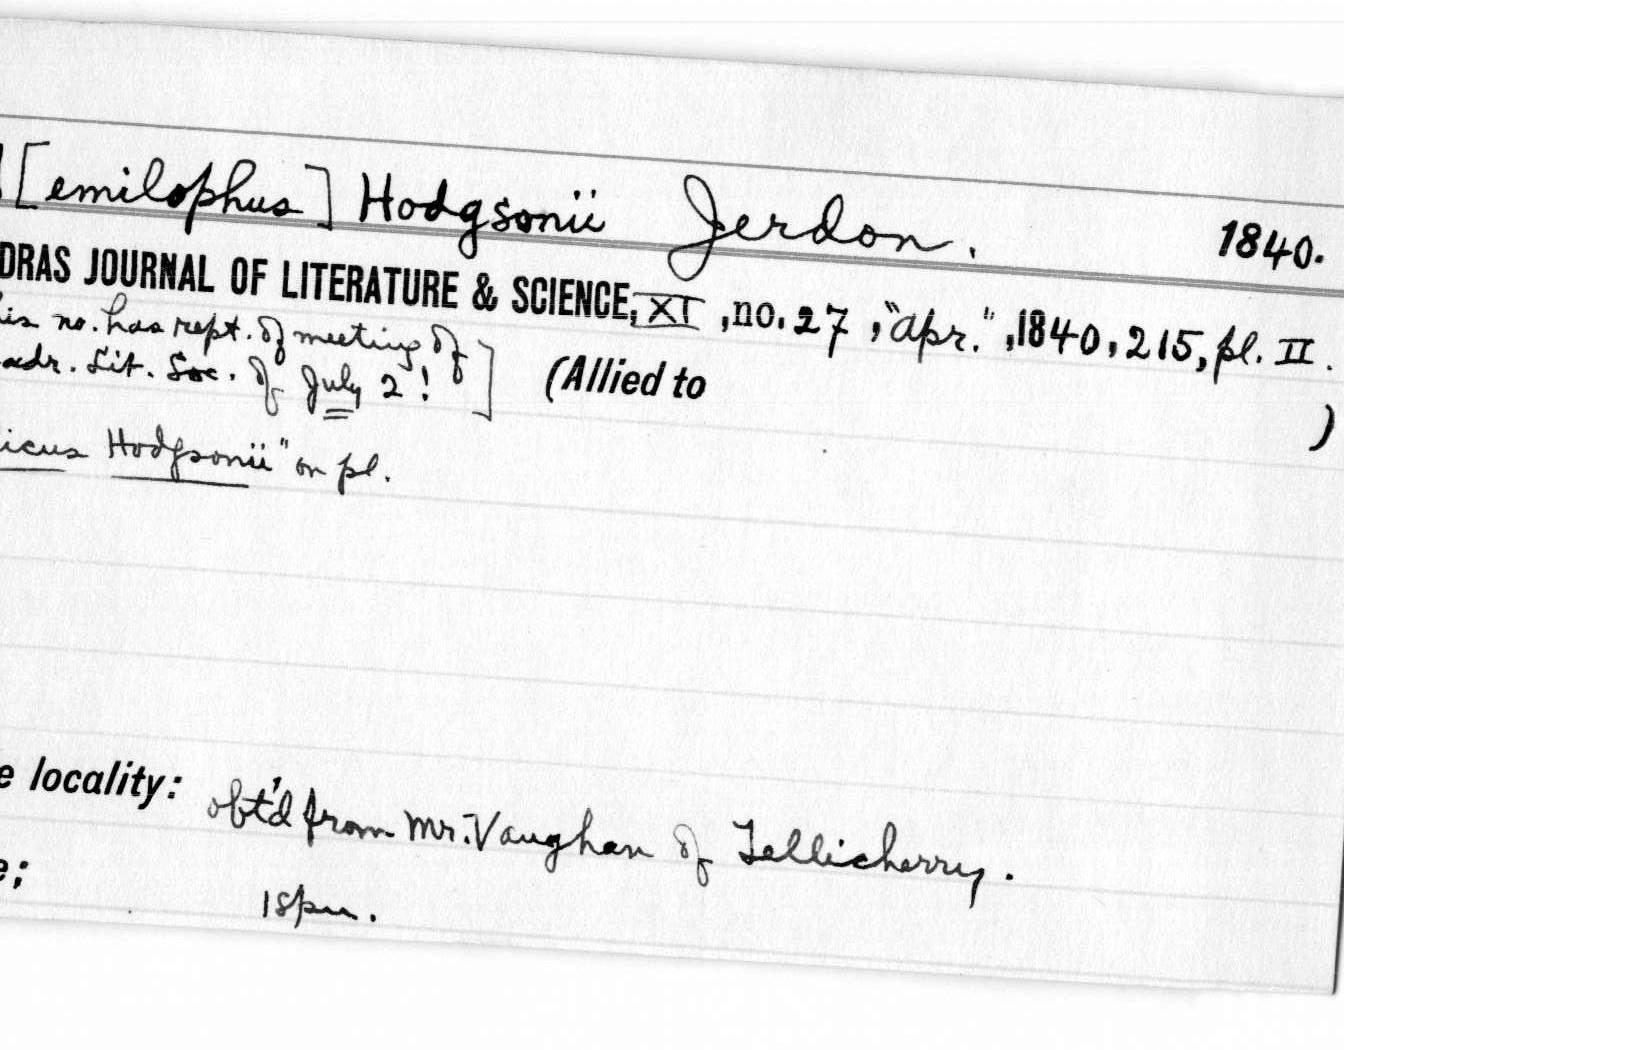 [emilophus] Hodgsonii Jerdon. 1840.
DRAS JOURNAL OF LITERATURE & SCIENCE, XI, no. 27, "Apr.", 1840, 215, pl. II.
is no. has rept. of meeting of
adr. Lit. Soc. of July 2!] (Allied to )
icus Hodgsonii" on pl.
e locality: obt'd from Mr. Vaughan of Tellicherry.
e; 1 spm.